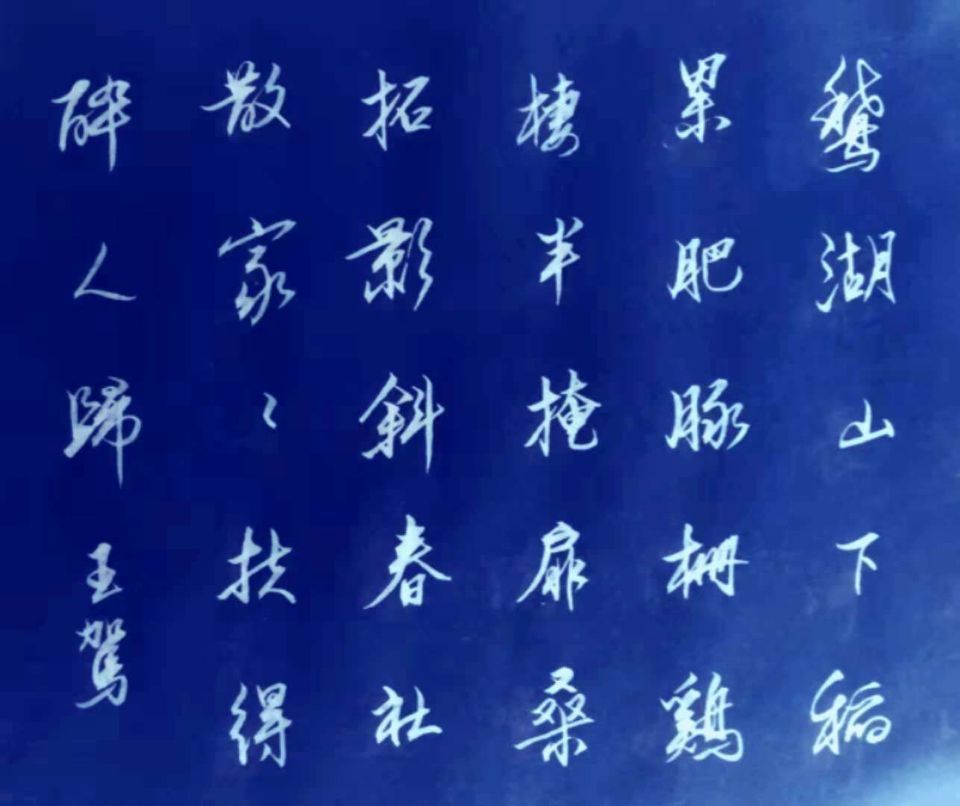 鵞湖山下稻
粱肥豚栅鷄
棲半掩扉桑
拓影斜春社
散家〻扶得
酔人歸 王駕